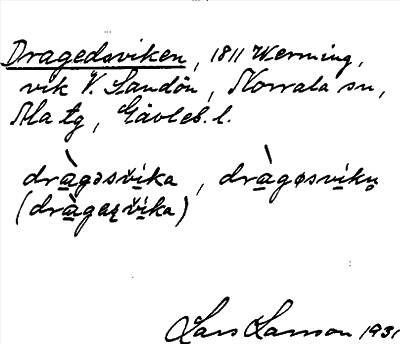 Dragedsviken, 1811 Werming,
vik V. Sandön, Norrala sn,
Ala tg, Gävleb. l.
dràgəsvika, dràgøsvikn̥
(dràgaʂvika)
Lars Larsson 1931